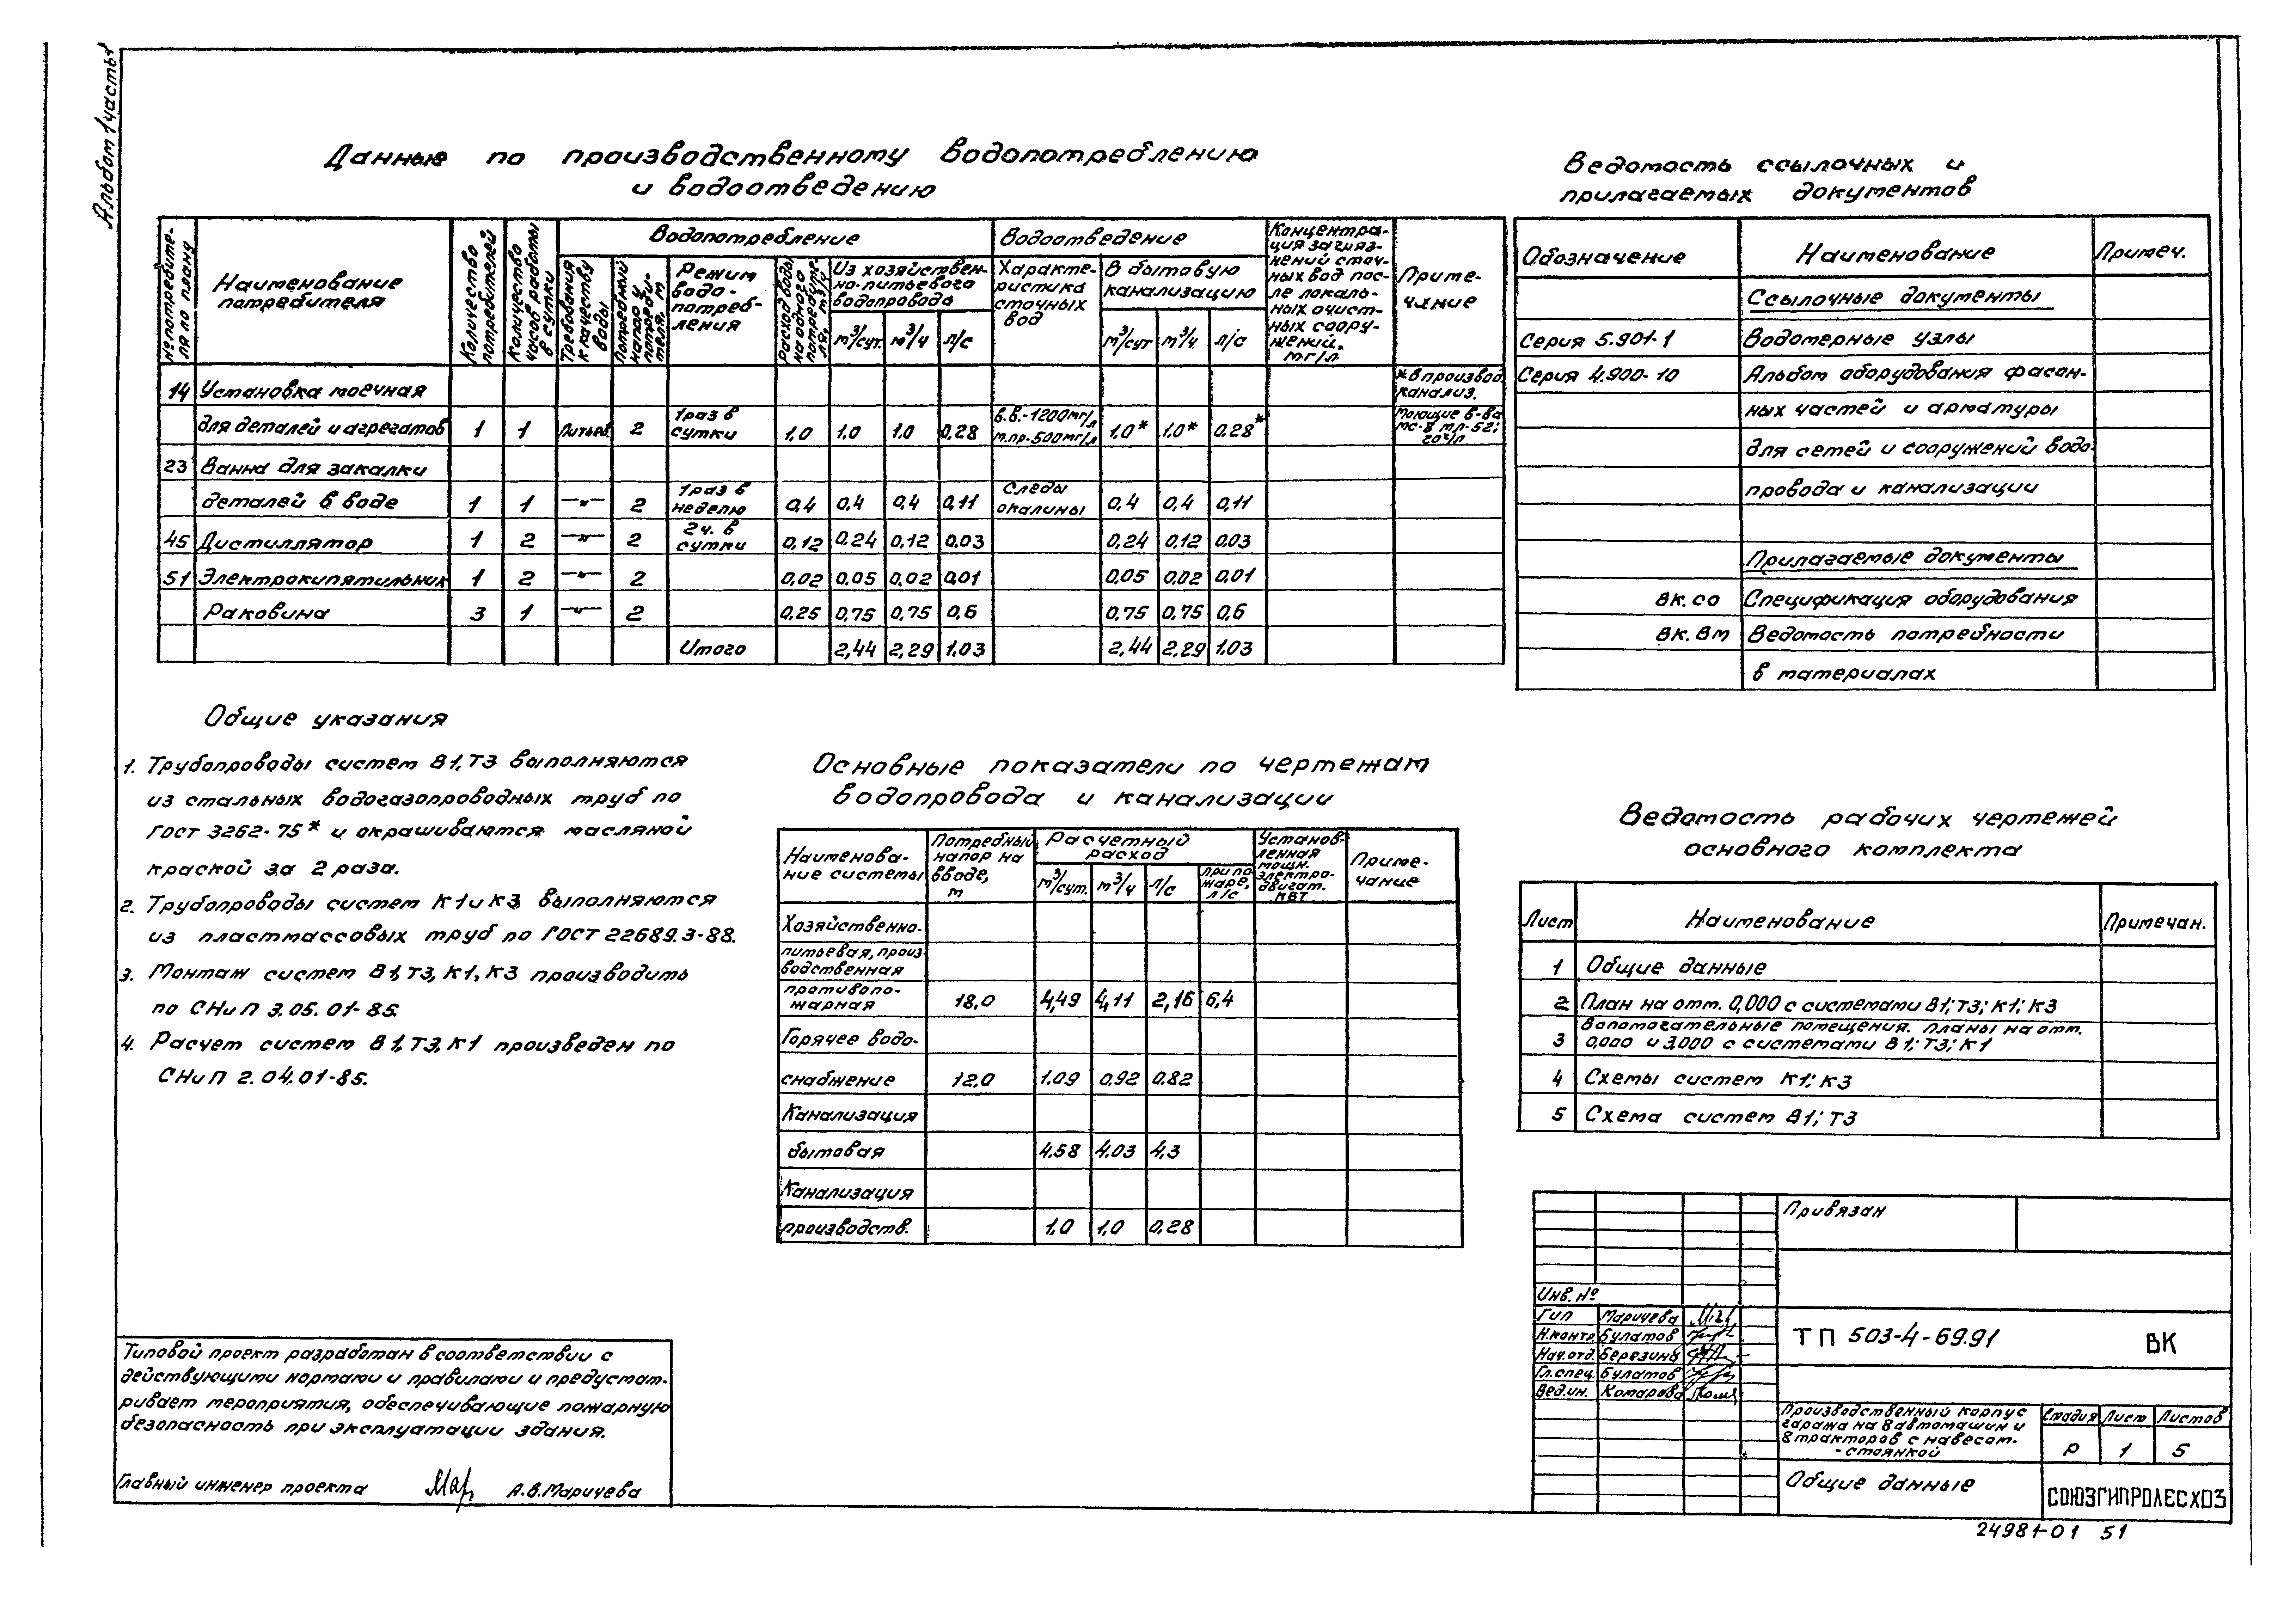 Альбом 1 часть 1
Данные по производственному водопотреблению
и водоотведению
№ потребителя по плану
Наименование потребителя
Количество потребителей
Количество часов работы в сутки
Водопотребление
Требования к качеству воды
Потребный напор у потребителя, м
Режим водо-потреб-ления
Расход воды на одного потребителя, м³/ч
Из хозяйствен-но-питьевого водопровода
м³/сут. м³/ч л/с
Водоотведение
Характе-ристика сточных вод
В бытовую канализацию
м³/сут м³/ч л/с
Концентра-ция загряз-нений сточ-ных вод пос-ле локаль-ных очист-ных соору-жений, мг/л
Приме-чание
14 Установка моечная *в производ. канализ.
для деталей и агрегатов 1 1 питьев. 2 1 раз в сутки 1,0 1,0 1,0 0,28 в.в.-1200мг/л м.пр.-500мг/л 1,0* 1,0* 0,28* Моющие в-ва
23 Ванна для закалки
деталей в воде 1 1 —"— 2 1 раз в неделю 0,4 0,4 0,4 0,11 Следы окалины 0,4 0,4 0,11
45 Дистиллятор 1 2 —"— 2 2 ч. в сутки 0,12 0,24 0,12 0,03 0,24 0,12 0,03
51 Электрокипятильник 1 2 —"— 2 0,02 0,05 0,02 0,01 0,05 0,02 0,01
Раковина 3 1 —"— 2 0,25 0,75 0,75 0,6 0,75 0,75 0,6
Итого 2,44 2,29 1,03 2,44 2,29 1,03
Ведомость ссылочных и
прилагаемых документов
Обозначение Наименование Примеч.
Ссылочные документы
Серия 5.901-1 Водомерные узлы
Серия 4.900-10 Альбом оборудования фасон-
ных частей и арматуры
для сетей и сооружений водо-
провода и канализации
Прилагаемые документы
ВК.СО Спецификация оборудования
ВК.ВМ Ведомость потребности
в материалах
Общие указания
1. Трубопроводы систем В1, Т3 выполняются
из стальных водогазопроводных труб по
ГОСТ 3262-75* и окрашиваются масляной
краской за 2 раза.
2. Трубопроводы систем К1 и К3 выполняются
из пластмассовых труб по ГОСТ 22689.3-88.
3. Монтаж систем В1, Т3, К1, К3 производить
по СНиП 3.05.01-85.
4. Расчет систем В1, Т3, К1 произведен по
СНиП 2.04.01-85.
Основные показатели по чертежам
водопровода и канализации
Наименова-ние системы
Потребный напор на вводе, м
Расчетный расход
м³/сут. м³/ч л/с при по-жаре, л/с
Установ-ленная мощн. электро-двигат. кВт
Приме-чание
Хозяйственно-
питьевая, произ-
водственная
противопо-
жарная 18,0 4,49 4,11 2,16 6,4
Горячее водо-
снабжение 12,0 1.09 0,92 0.82
Канализация
бытовая 4.58 4.03 4,3
Канализация
производств. 1,0 1,0 0,28
Ведомость рабочих чертежей
основного комплекта
Лист Наименование Примечан.
1 Общие данные
2 План на отм. 0,000 с системами В1; Т3; К1; К3
Вспомогательные помещения. Планы на отм.
3 0,000 и 3,000 с системами В1; Т3; К1
4 Схемы систем К1; К3
5 Схема систем В1; Т3
Типовой проект разработан в соответствии с
действующими нормами и правилами и предусмат-
ривает мероприятия, обеспечивающие пожарную
безопасность при эксплуатации здания.
Главный инженер проекта Мар. А.В. Маричева
Привязан
Инв. №
Гип Маричева
Н.контр. Булатов
Нач.отд. Березина
Гл.спец. Булатов
Вед.ин. Комарова
ТП 503-4-69.91 ВК
Производственный корпус
гаража на 8 автомашин и
8 тракторов с навесом-
-стоянкой
Стадия Лист Листов
Р 1 5
Общие данные
СОЮЗГИПРОЛЕСХОЗ
24981-01 51